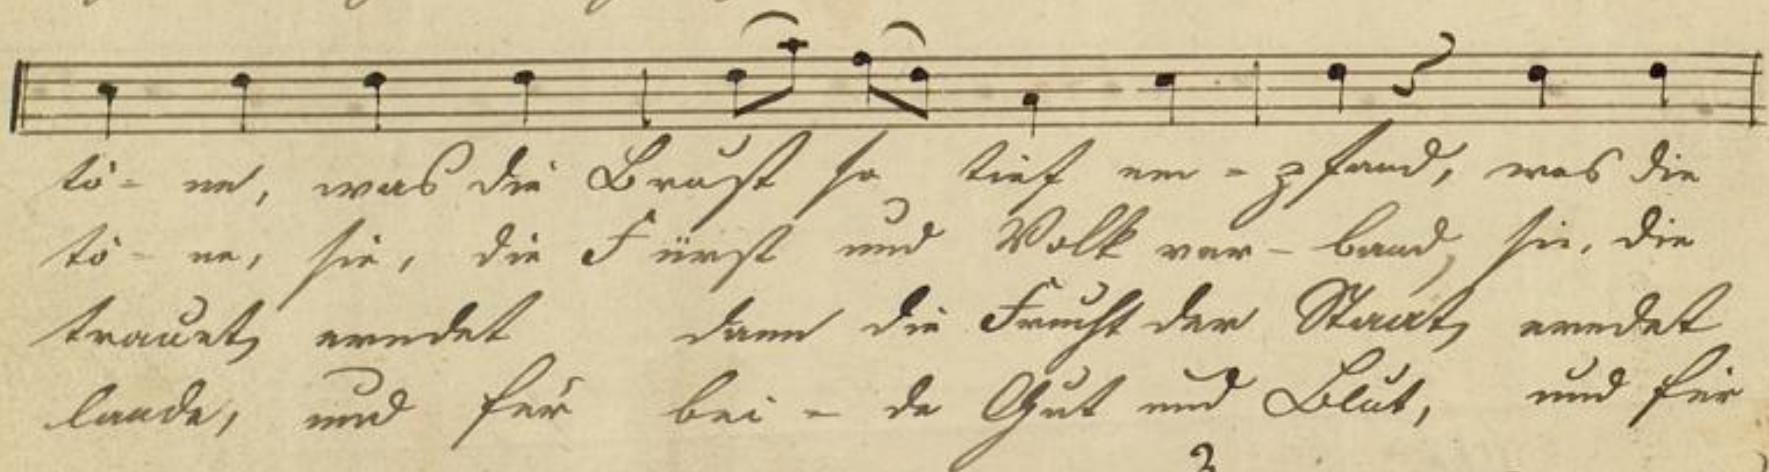 tö- ne, was die Brust so tief em - pfand, was die
tö - ne, sie, die Fürst und Volk ver - band, sie, die
trauet, erndet dann die Frucht der Staat, erndet
lande, und für bei - de Gut und Blut, und für